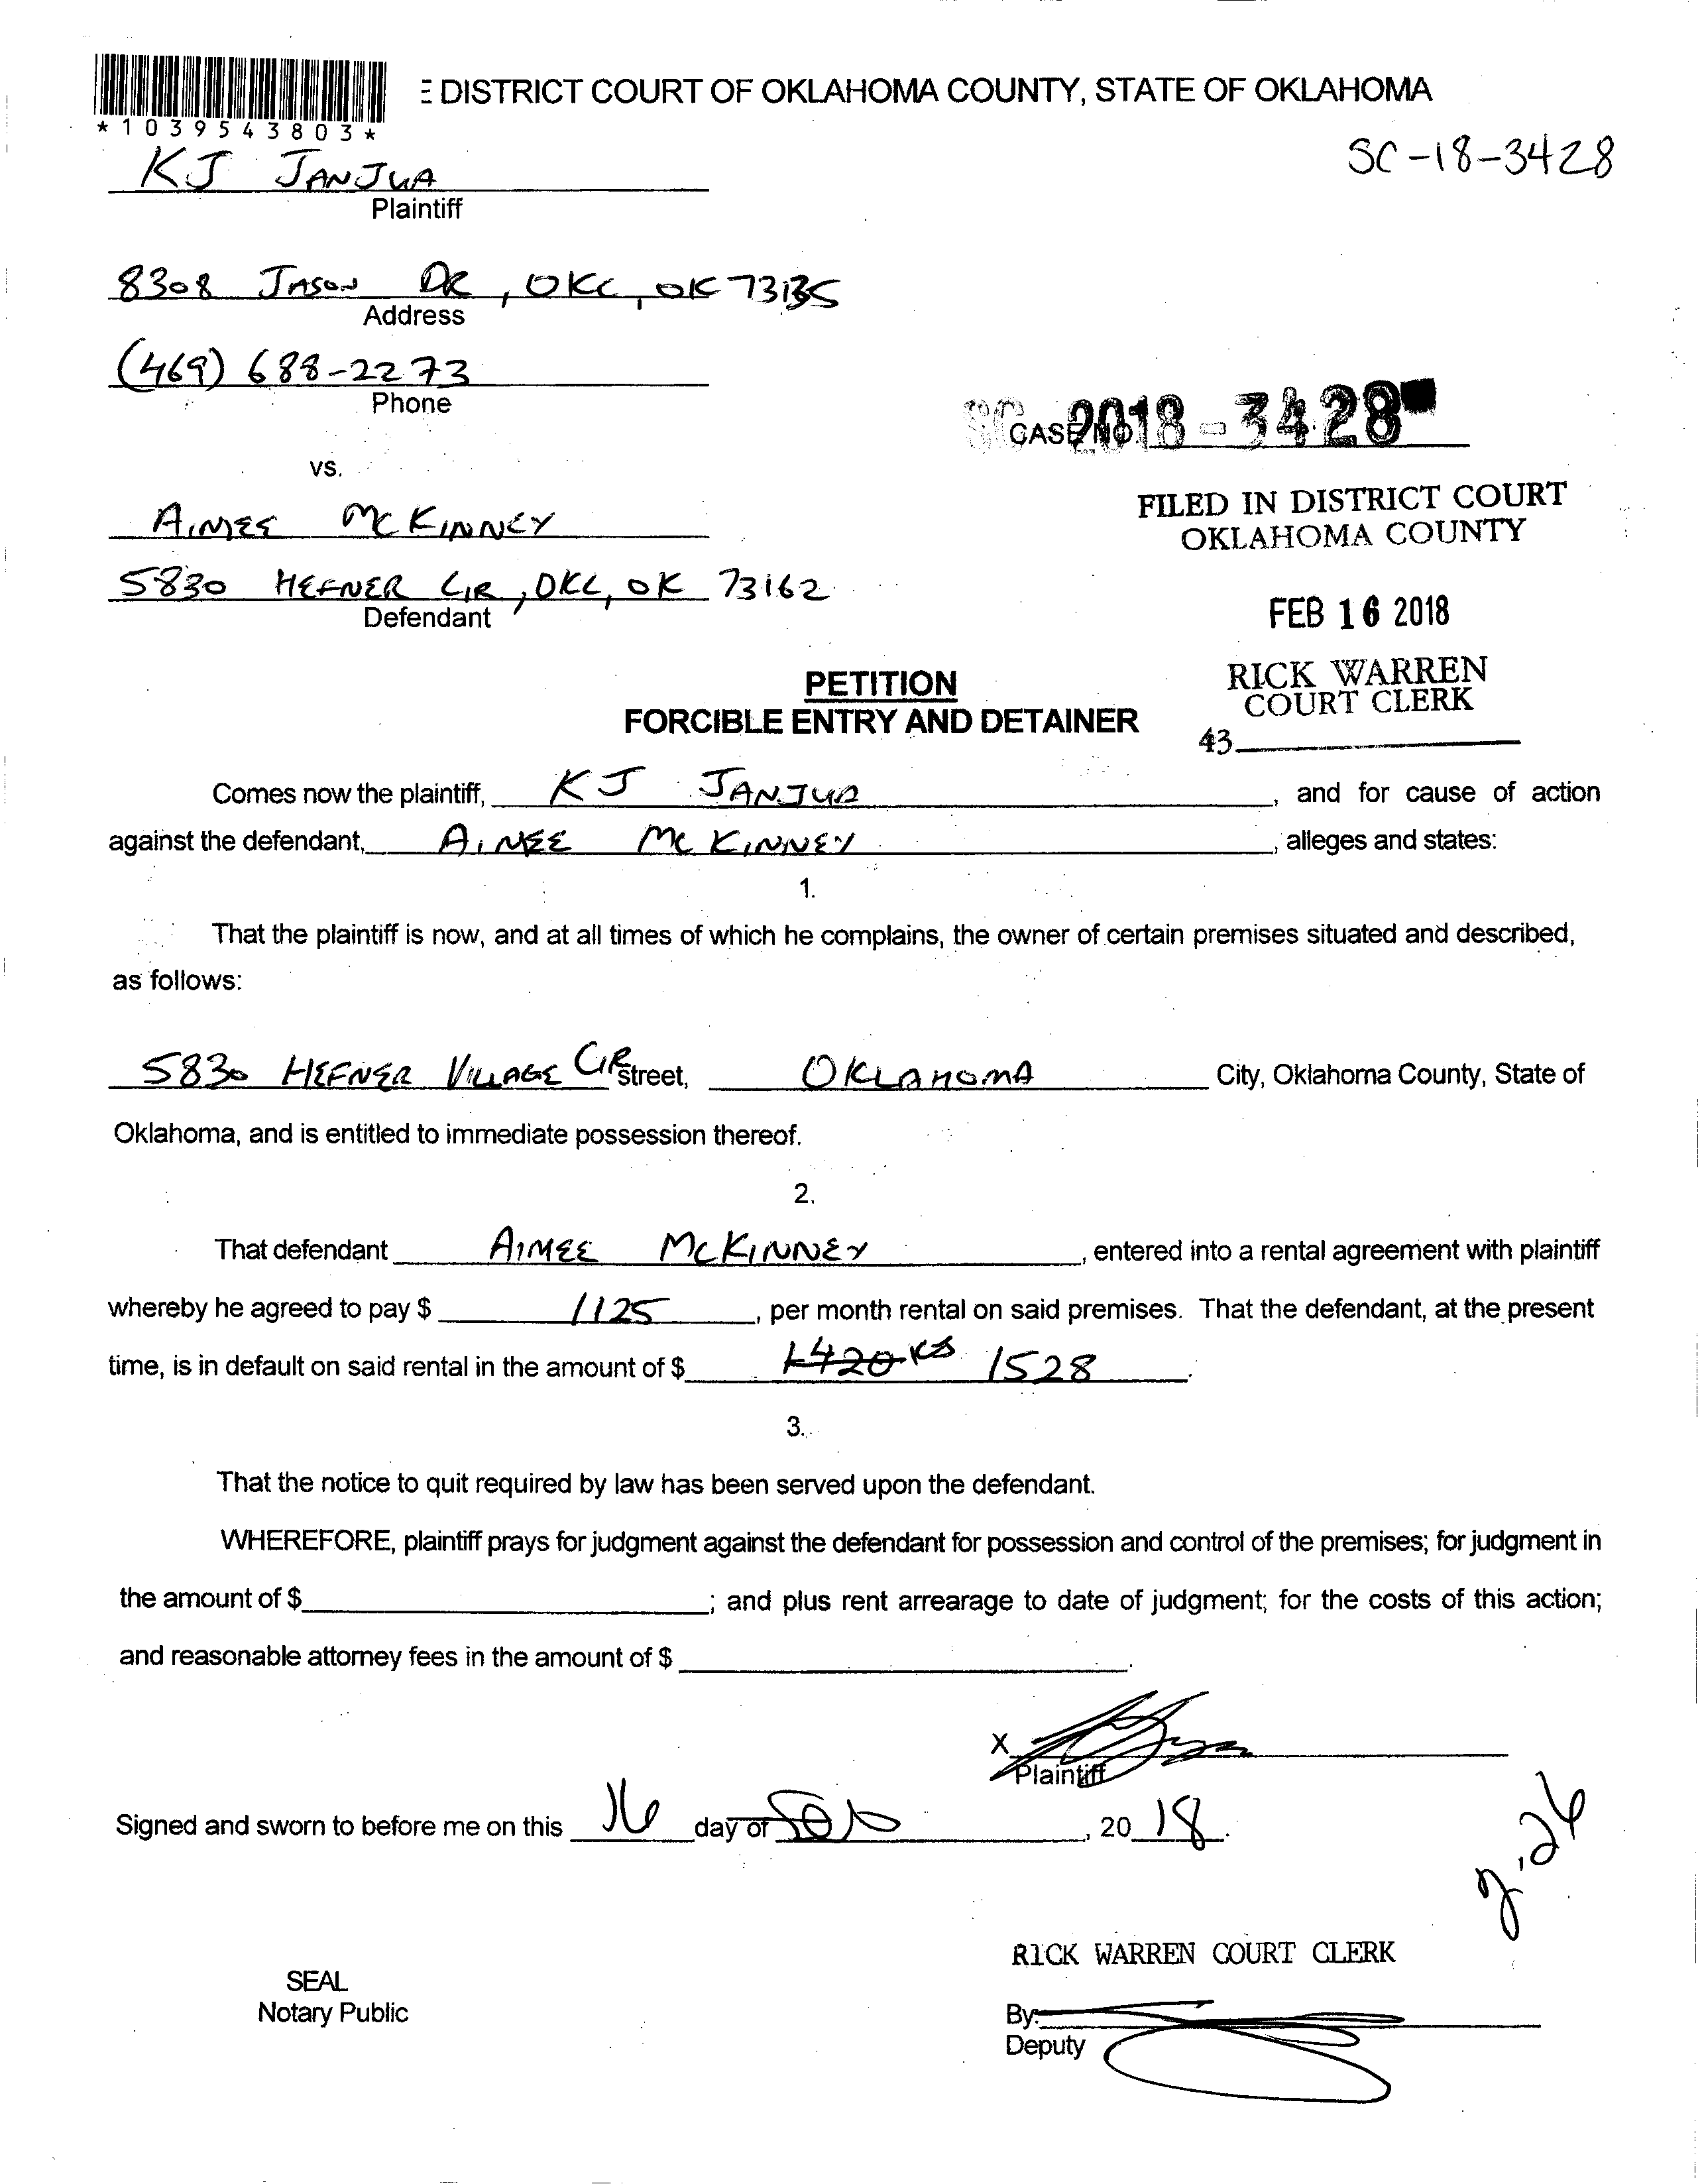 DISTRICT COURT OF OKLAHOMA COUNTY, STATE OF OKLAHOMA
*1039543803*
SC-18-3428
KJ JANJUA
Plaintiff
8308 JASON DR, OKC, OK 73135
Address
(469) 688-2273
Phone
SC 2018-3428
CASE NO.
vs.
FILED IN DISTRICT COURT
OKLAHOMA COUNTY
AIMEE MCKINNEY
5830 HEFNER CIR, OKC, OK 73162
Defendant
FEB 16 2018
PETITION
FORCIBLE ENTRY AND DETAINER
RICK WARREN
COURT CLERK
43
Comes now the plaintiff, KJ JANJUA, and for cause of action
against the defendant, AIMEE MCKINNEY, alleges and states:
1.
That the plaintiff is now, and at all times of which he complains, the owner of certain premises situated and described,
as follows:
5830 HEFNER VILLAGE CIR Street, OKLAHOMA City, Oklahoma County, State of
Oklahoma, and is entitled to immediate possession thereof.
2.
That defendant AIMEE MCKINNEY, entered into a rental agreement with plaintiff
whereby he agreed to pay $ 1125, per month rental on said premises. That the defendant, at the present
time, is in default on said rental in the amount of $ 1420 KJ 1528.
3.
That the notice to quit required by law has been served upon the defendant.
WHEREFORE, plaintiff prays for judgment against the defendant for possession and control of the premises; for judgment in
the amount of $ ; and plus rent arrearage to date of judgment; for the costs of this action;
and reasonable attorney fees in the amount of $ .
X
Plaintiff
Signed and sworn to before me on this 16 day of Feb, 2018.
2.26
RICK WARREN COURT CLERK
SEAL
Notary Public
By:
Deputy